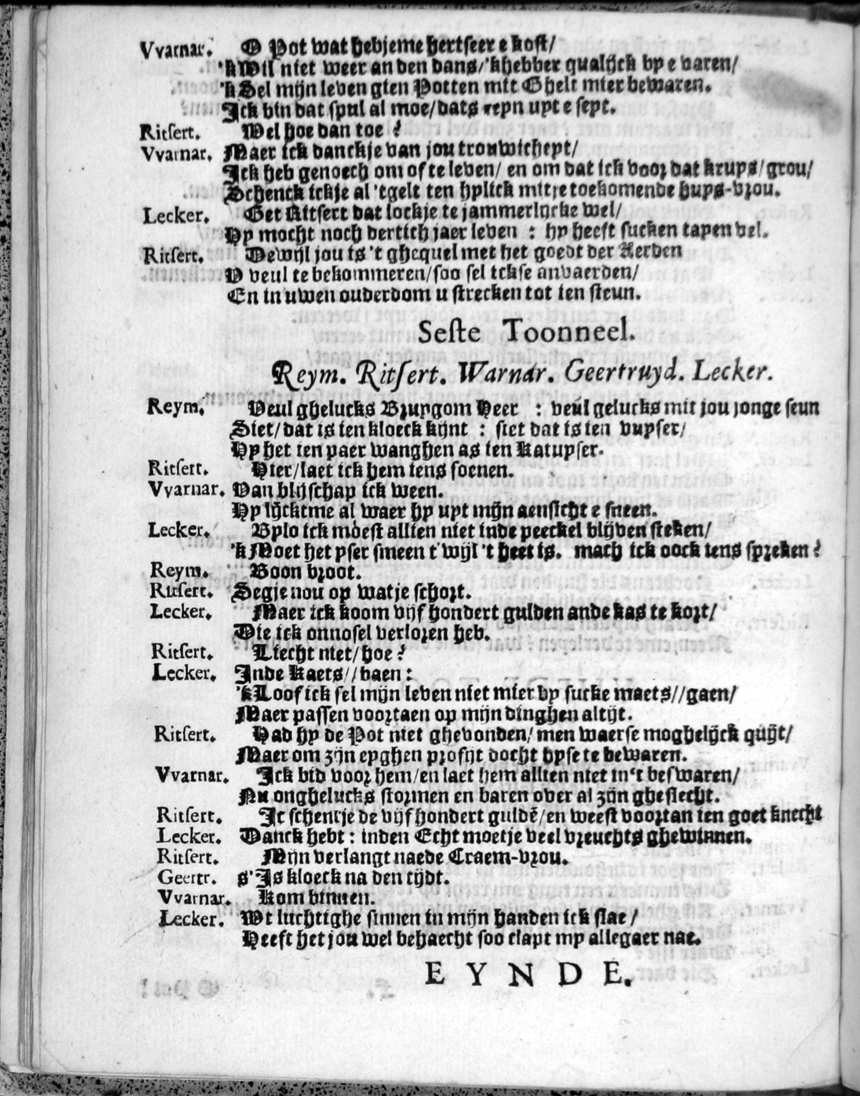 Vvarnar. O Pot wat hebjeme hertseer e kost/
'k Wil niet weer an den dans/'khebber qualijck by e varen/
'k Sel mijn leven gien Potten mit Ghelt mier bewaren.
Ick bin dat spul al moe/dats reyn uyt e seyt.
Ritsert. Wel hoe dan toe?
Vvarnar. Maer ick danckje van jou trouwicheyt/
Ick heb genoech om of te leven/ en om dat ick voor dat kruys/grou/
Schenck ickje al 'tgelt ten hylick mitje toekomende huys-vrou.
Lecker. Get Ritsert dat lockje te jammerlijcke wel/
Hy mocht noch dertich jaer leven : hy heeft sucken tapen vel.
Ritsert. Dewijl jou is 't ghequel met het goedt der Aerden
O veul te bekommeren/soo sel ickse anvaerden/
En in uwen ouderdom u strecken tot ien steun.
Seste Toonneel.
Reym. Ritsert. Warnar. Geertruyd. Lecker.
Reym. Veul ghelucks Bruygom Heer : veul gelucks mit jou jonge seun
Siet/dat is ien kloeck kijnt : siet dat is ien vuyser/
Hy het ien paer wanghen as ien Katuyser.
Ritsert. Hier/laet ick hem iens soenen.
Vvarnar. Van blijschap ick ween.
Hy lijcktme al waer hy uyt mijn aensicht e sneen.
Lecker. Bylo ick moest allien niet inde peeckel blijven steken/
'k Moet het yser smeen t'wijl 't heet is. mach ick oock iens spreken?
Reym. Boon vroot.
Ritsert. Segje nou op watje schort.
Lecker. Maer ick koom vijf hondert gulden ande kas te kort/
Die ick onnosel verloren heb.
Ritsert. Liecht niet/hoe?
Lecker. Inde Kaets//baen:
'k Loof ick sel mijn leven niet mier by sucke maets//gaen/
Maer passen voortaen op mijn dinghen altijt.
Ritsert. Had hy de Pot niet ghevonden/ men waerse moghelijck quijt/
Maer om zijn eyghen profijt docht hyse te bewaren.
Vvarnar. Ick bid voor hem/en laet hem allien niet in't beswaren/
Nu onghelucks stormen en baren over al zijn gheslecht.
Ritsert. Ic schencje de vijf hondert guldē/en weest voortan ien goet knecht
Lecker. Danck hebt: inden Echt moetje veel vreuchts ghewinnen.
Ritsert. Mijn verlangt naede Craem-vrou.
Geertr. s'Is kloeck na den tijdt.
Vvarnar. Kom binnen.
Lecker. Wt luchtighe sinnen in mijn handen ick slae/
Heeft het jou wel behaecht soo clapt my allegaer nae.
EYNDE.